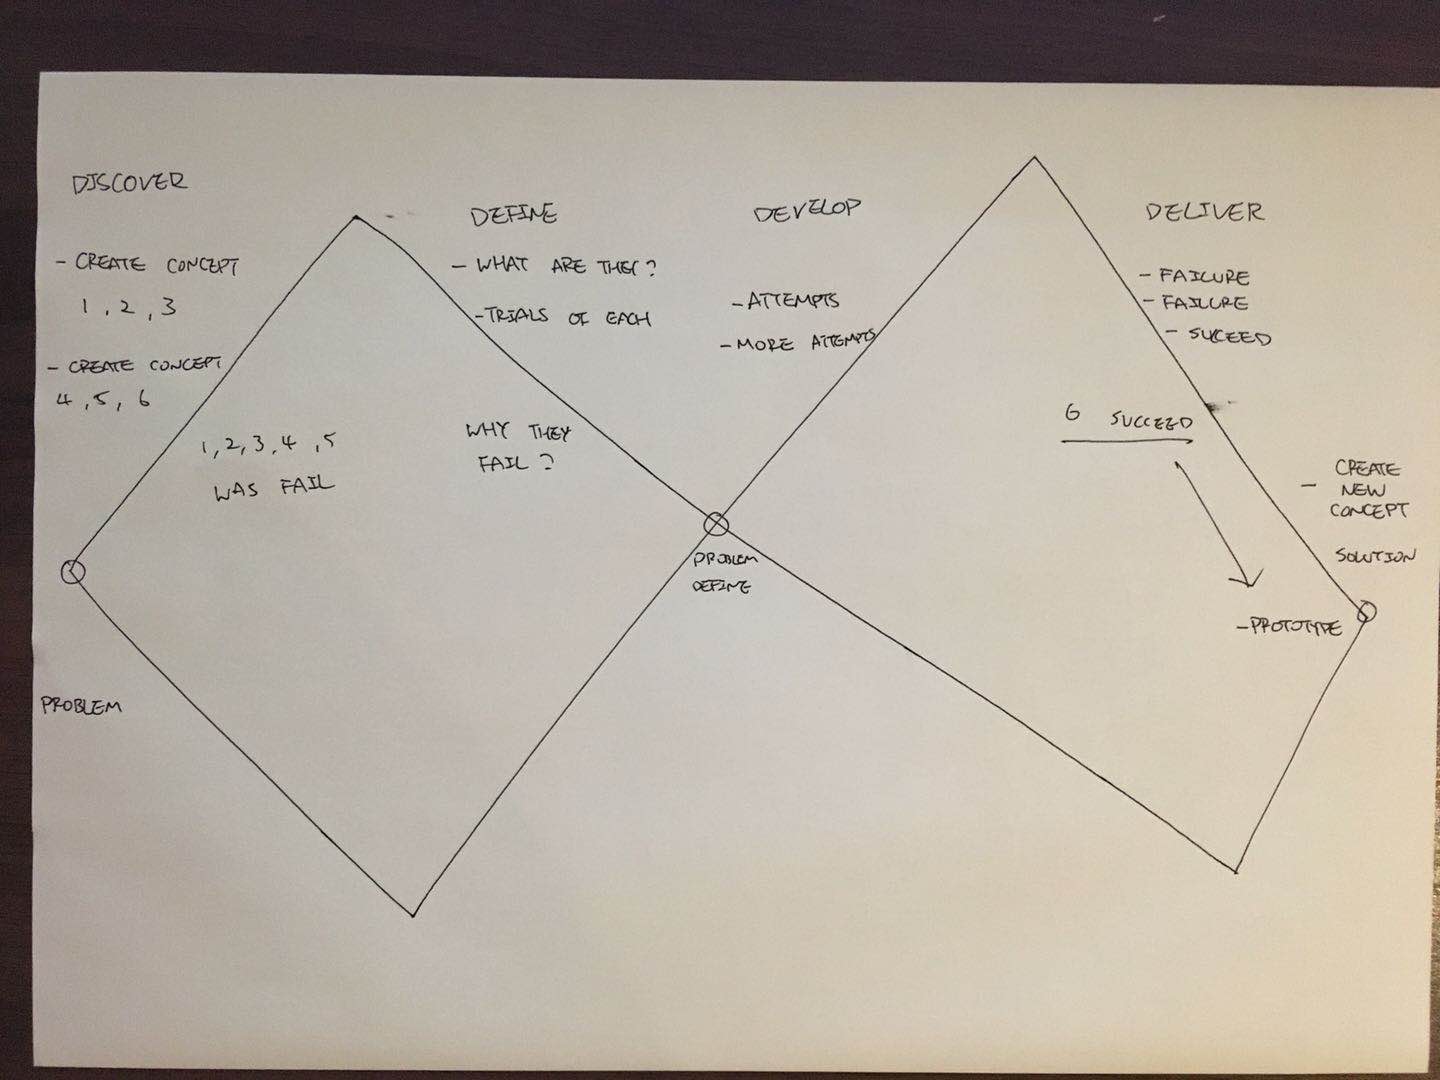 DISCOVER
- CREATE CONCEPT
1 , 2 , 3
- CREATE CONCEPT
4 , 5 , 6
1, 2, 3, 4 , 5
WAS FAIL
PROBLEM
DEFINE
- WHAT ARE THEY ?
- TRIALS OF EACH
WHY THEY
FAIL ?
PROBLEM
DEFINE
DEVELOP
- ATTEMPTS
- MORE ATTEMPTS
DELIVER
- FAILURE
- FAILURE
- SUCEED
6 SUCCEED
- CREATE
NEW
CONCEPT
SOLUTION
- PROTOTYPE